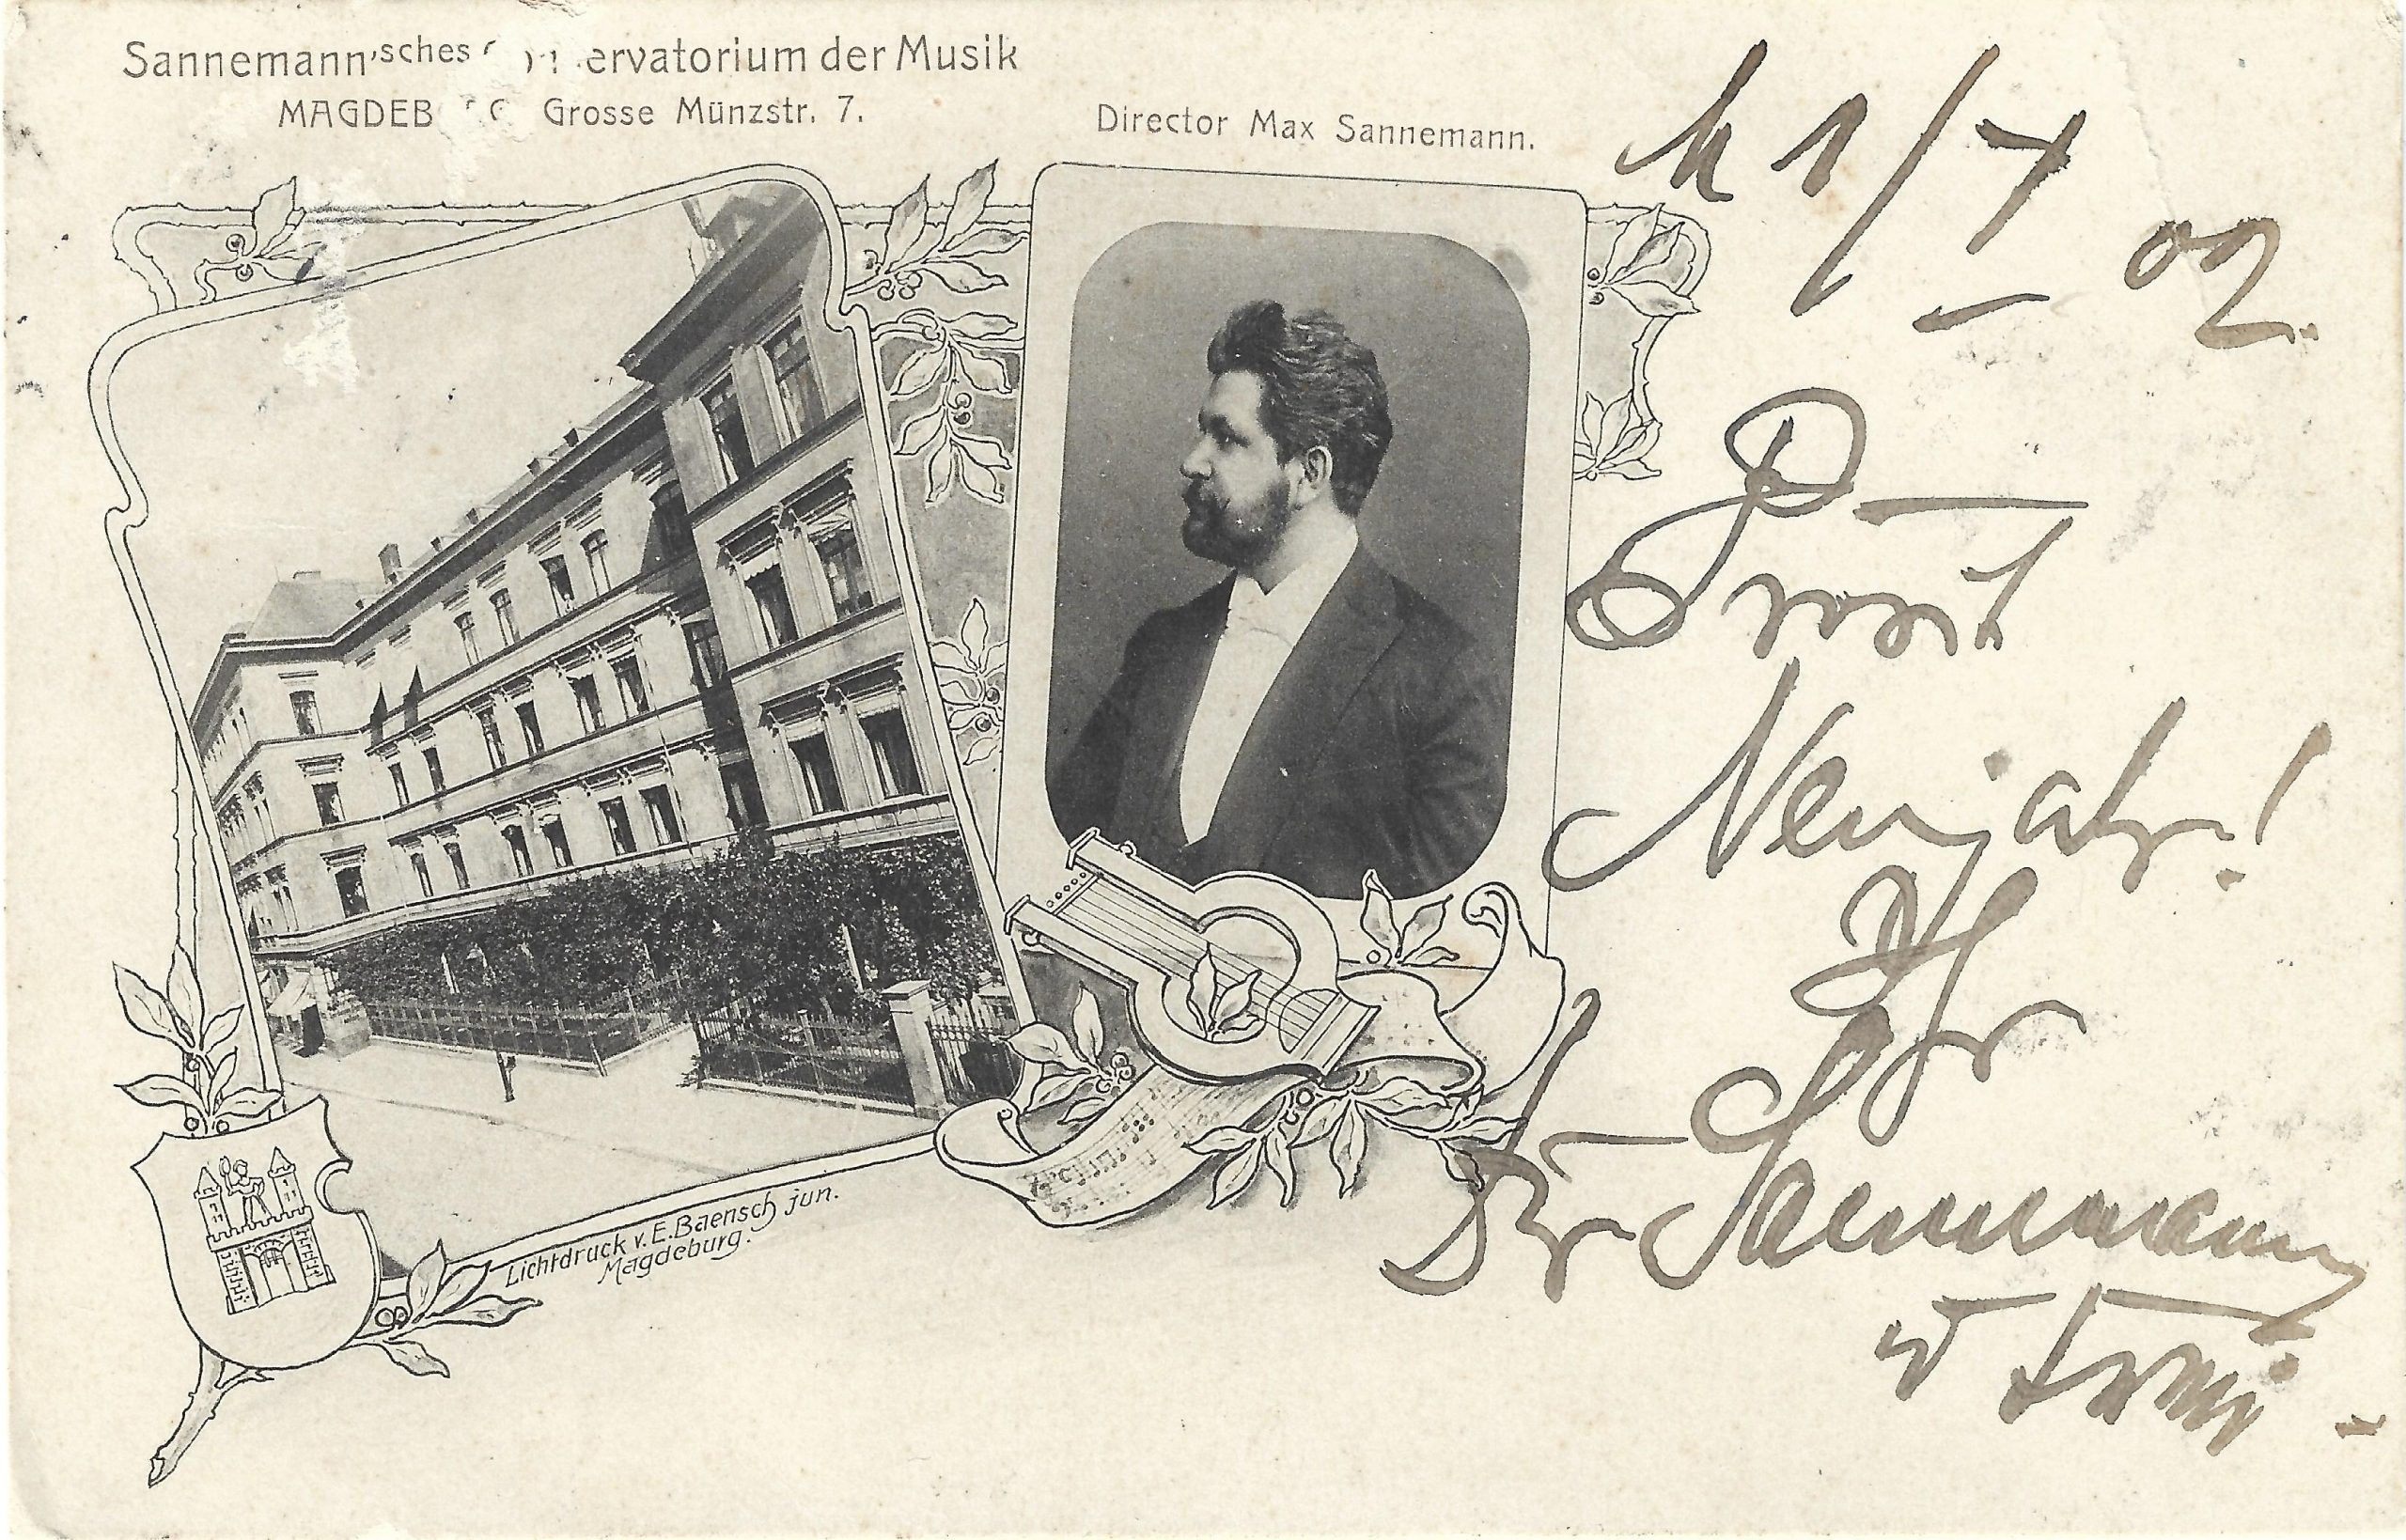 Sannemann'sches ervatorium der Musik
MAGDEB G Grosse Münzstr. 7.
Director Max Sannemann.
1/1
02.
Prosit
Neujahr!
Ihr
Dr Sannemann
Lichtdruck v. E. Baensch jun.
Magdeburg.